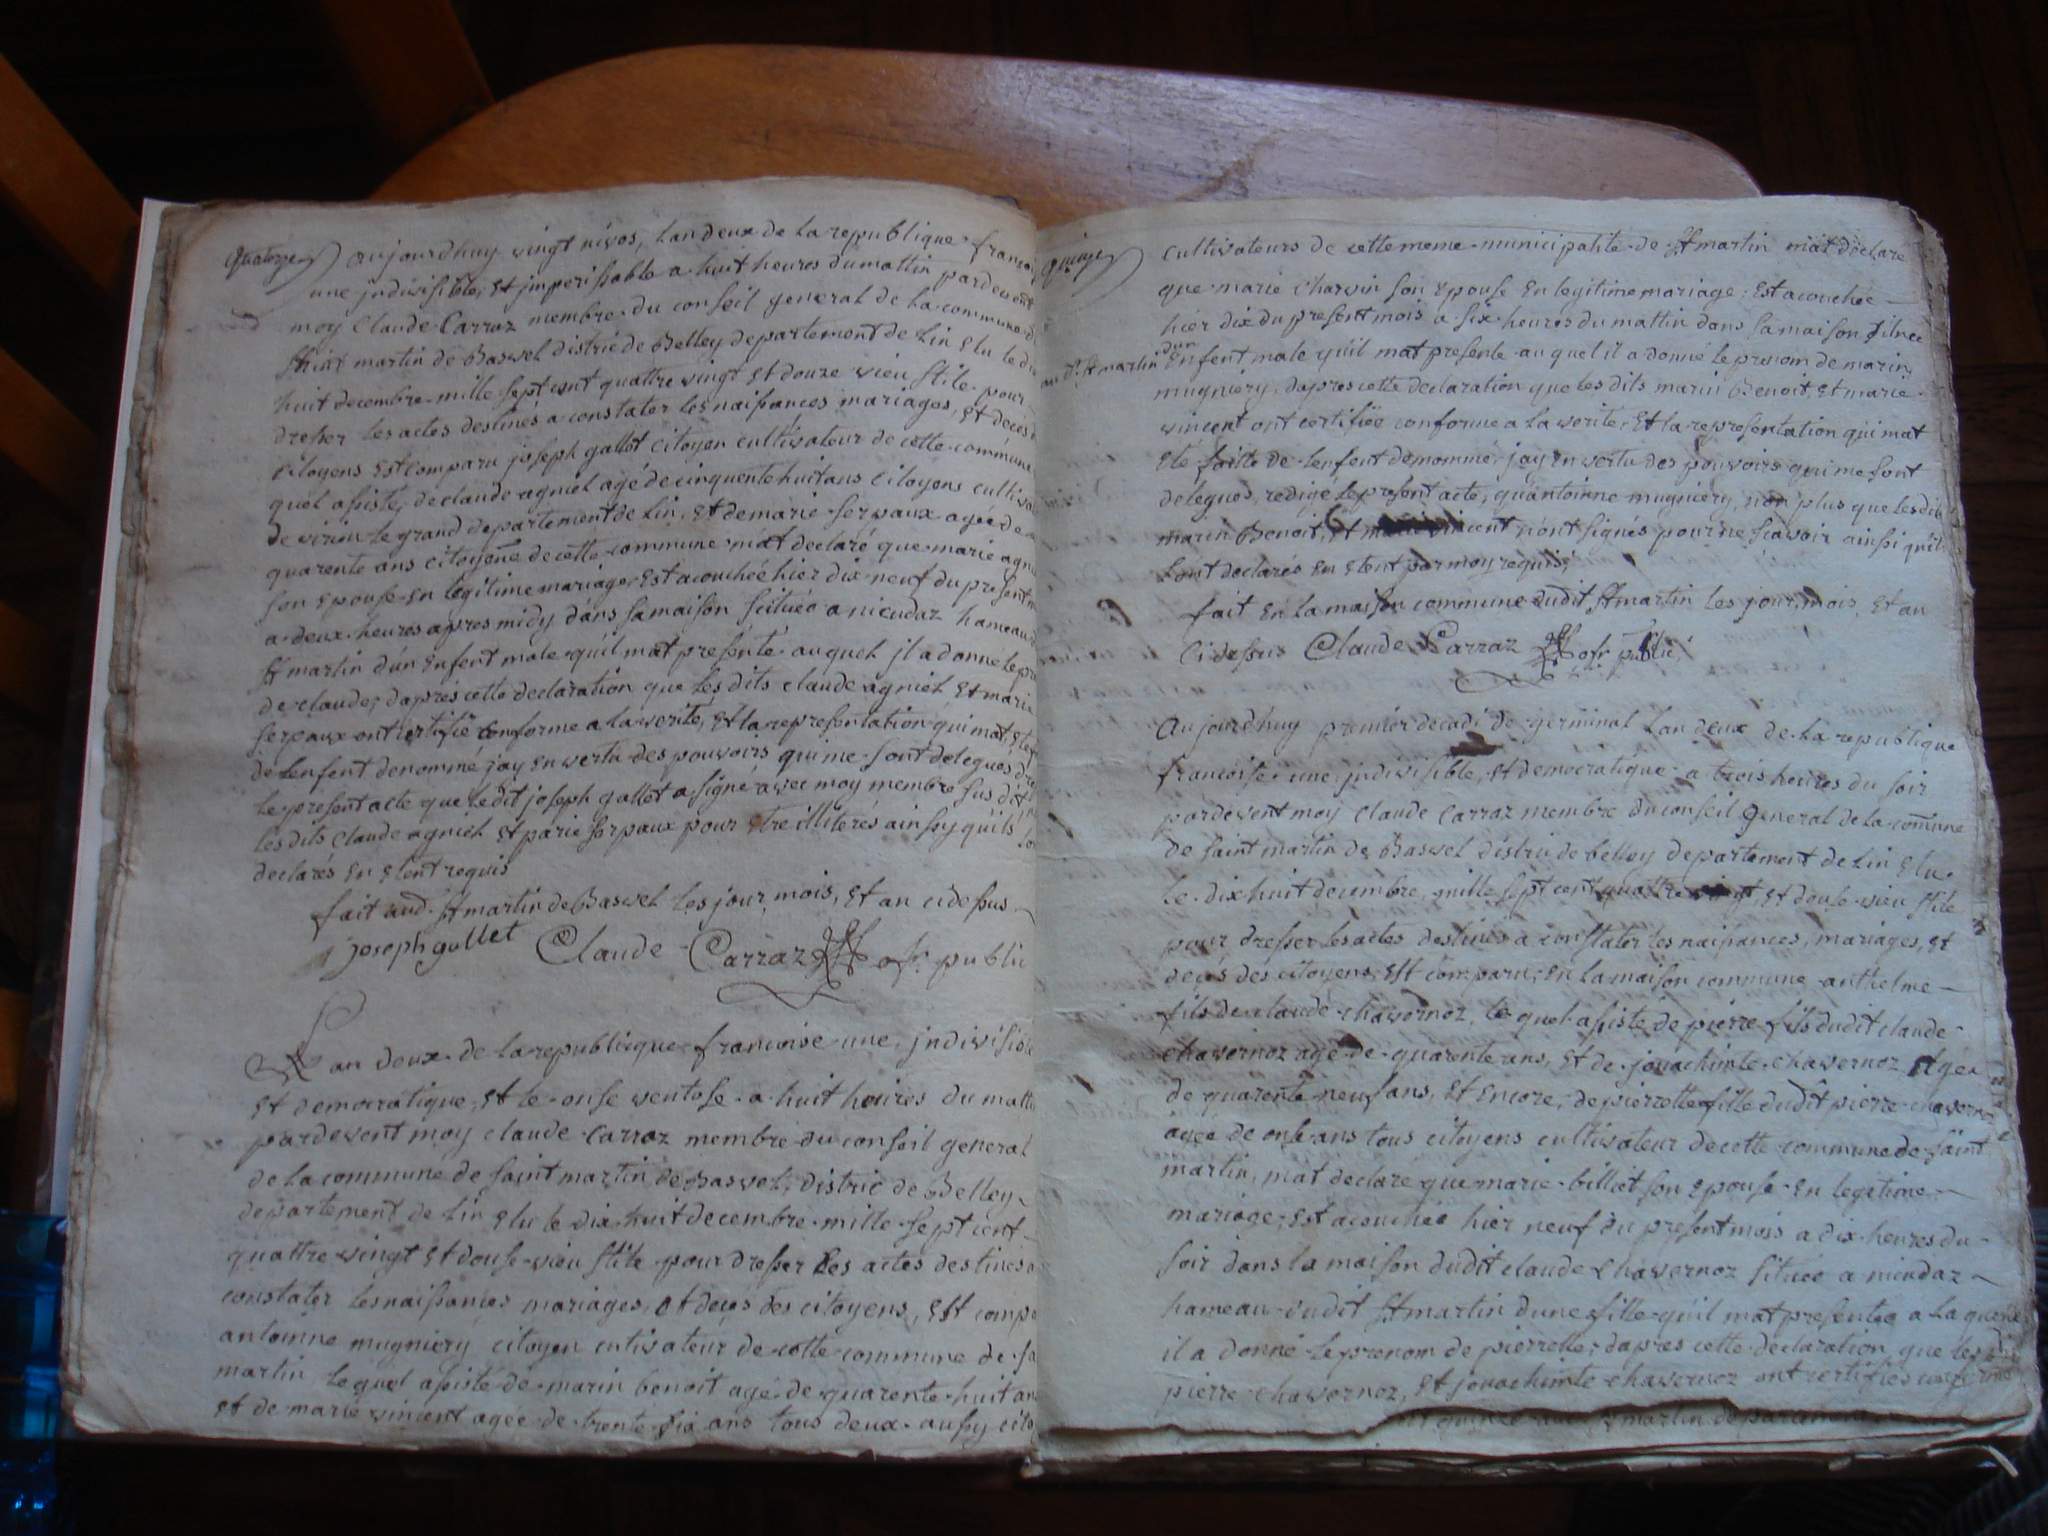 quatorze
aujourdhuy vingt nivos, lan deux de la republique francoi
une jndivisible, et jmperissable a huit heures du mattin pardevent
moy Claude Carraz membre du conseil general de la commune d
saint martin de Bavel distric de Belley departement de Lin elu le di
huit decembre mille sept cent quattre vingt et douze vieu stile pour
dresser les actes destinés a constater les naissances mariages, et deces d
citoyens est comparu joseph gallet citoyen cultivateur de cette commune
quel assisté, de claude agniel agé de cinquente huit ans citoyens cultiva
de virieu le grand departement de Lin, et de marie servaux agée de
quarente ans citoyene de cette commune mat declaré que marie agni
son epouse en legitime mariage, est acouchée hier dix neuf du present m
a deux heures apres midy dans sa maison scituéo a niendaz hameau d
st martin dun enfent male quil mat presenté auquel jl a donné le pre
de claude, dapres cette declaration que les dits claude agniel et marie
serpaux ont certifié conforme a la verité, et la representation qui mat ete
de lenfent denommé jay en vertu des pouvoirs qui me sont delegués dre
le present acte que ledit joseph gallet a signé avec moy membre sus dit
les dits claude agniel et parie serpaux pour etre illiterés ainssy quils lo
declarés en etent requis
fait aud. st martin de Bavel les jour, mois, et an cidessus
joseph gallet Claude Carraz ofr. public
L an deux de la republicque francoise une, jndivisible
et democratique, et le onse ventose a huit houres du matti
pardevent moy claude carraz membre du conseil general
de la commune de saint martin de Bavel, distric de Belley
departement de Lin elu le dix huit decembre mille sept cent
quattre vingt et douse vieu stile pour dresser les actes destinés a
constater les naissances mariages, et decés des citoyens, est compa
antoinne mugniery citoyen cutivateur de cette commune de sa
martin le quel assisté de marin benoit agé de quarente huit an
et de marie vincent agée de trente six ans tous deux aussy cito
quinze
cultivateurs de cette meme municipalité de st martin mat declare
que marie charvin son epouse en legitime mariage, est acouchée
hier dix du present mois a six heures du mattin dans sa maison situee
au d. st martin dun enfent male quil mat presenté au quel il a donné le prenom de marin
mugniery, dapres cette declaration que les dits marin Benoit, et marie
vincent ont certifiée conforme a la verité, et la representation qui mat
eté faitte de lenfent denommé, jay en vertu des pouvoirs qui me sont
delegués, redigé le present acte, quantoinne mugniery, non plus que les dits
marin Benoit, et vincent nont signés pour ne scavoir ainssi quils
lont declarés en etent par moy requis
fait en la maison commune dudit st martin les jour, mois, et an
cidessus Claude Carraz ofr public
Aujourdhuy premier decadi de germinal lan deux de la republique
francoise une, jndivisible, et democratique a trois heures du soir
pardevent moy Claude Carraz membre du conseil general de la comune
de saint martin de Bavel distric de belley departement de Lin elu
le dix huit decembre mille sept cent quattre vingt, et douse vieu stile
pour dresser les actes destinés a constater les naissances, mariages, et
decés des citoyens, est comparu, en la maison commune anthelme
fils de claude chavernoz, le quel assisté de pierre fils dudit claude
chavernoz agé de quarente ans, et de jouachinte chavernoz agée
de quarente neuf ans, et encore, de pierrette fille dudit pierre chavernoz
agée de onse ans tous citoyens cultivateur de cette commune de saint
martin, mat declare que marie billiet son epouse en legitime
mariage, est acouchée hier neuf du present mois a dix heures du
soir dans la maison dudit claude chavernoz située a niendaz
hameau dudit st martin dune fille quil mat presentée a la quelle
il a donné le prenom de pierrette, dapres cette declaration que les dits
pierre chavernoz, et jouachinte chavernoz ont certifiés conforme
martin departement